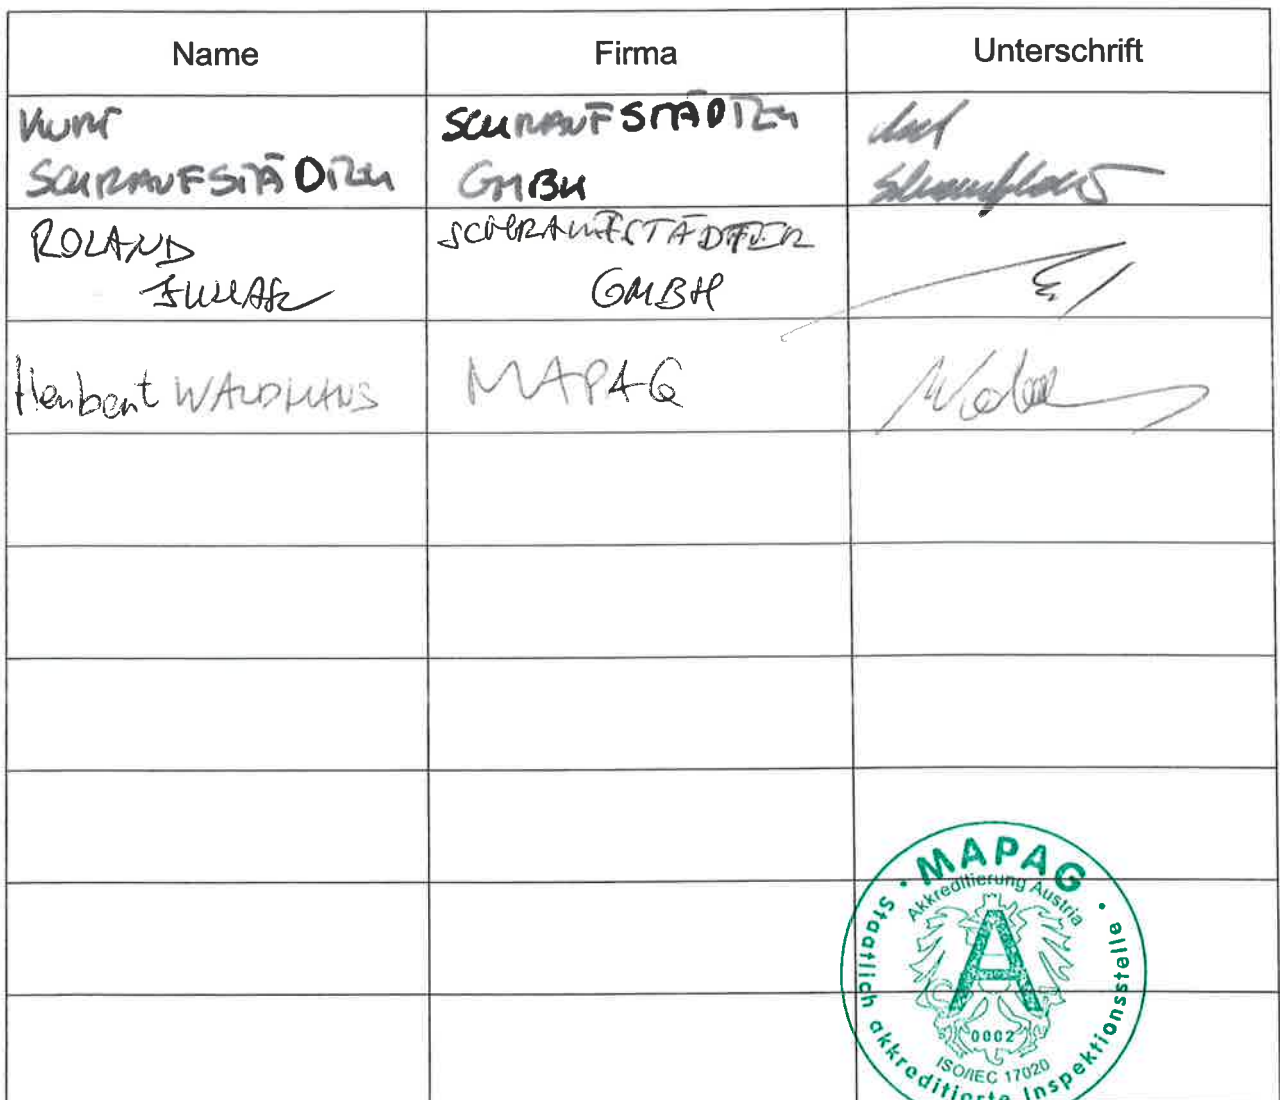 Name Firma Unterschrift
KURT SCHRAUFSTÄDTER
SCHRAUFSTÄDTER GMBH
ROLAND
SCHRAUFSTÄDTER
GMBH
Herbert WALDHANS MAPAG
MAPAG
Akkreditierung Austria
A
0002
ISO/IEC 17020
Staatlich akkreditierte Inspektionsstelle